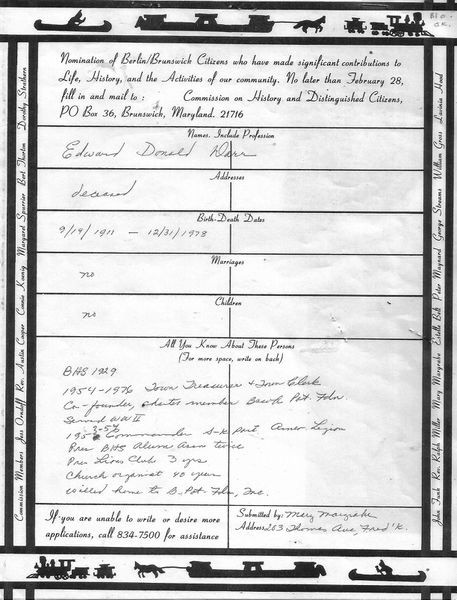 BIO
OK.
Nomination of Berlin/Brunswick Citizens who have made significant contributions to
Life, History, and the Activities of our community. No later than February 28,
fill in and mail to : Commission on History and Distinguished Citizens,
PO Box 36, Brunswick, Maryland. 21716
Names. Include Profession
Edward Donald Darr
Addresses
deceased
Birth-Death Dates
9/19/1911 — 12/31/1978
Marriages
no
Children
no
All You Know About These Persons
(For more space, write on back)
BHS 1929
1954-1976 Town Treasurer & Town Clerk
Co-founder, charter member Pot. Fdn.
Served WW II
Commander Post Amer Legion
Pres BHS Alumni Assn twice
Pres Lions Club 3 yrs
Church organist 40 years
willed home to B. Pot. Fdn, Inc.
If you are unable to write or desire more
applications, call 834-7500 for assistance
Submitted by: Mary Margrabe
Address: 203 Thomas Ave, Fred'k.
Commission Members Jess Orndorff Rev. Austin Cooper Connie Koenig Margaret Spurrier Bert Thorton Dorothy Strathern
John Funk Rev. Ralph Miller Mary Margrabe Estella Bell Peter Maynard George Streams William Gross Lavinia Hood